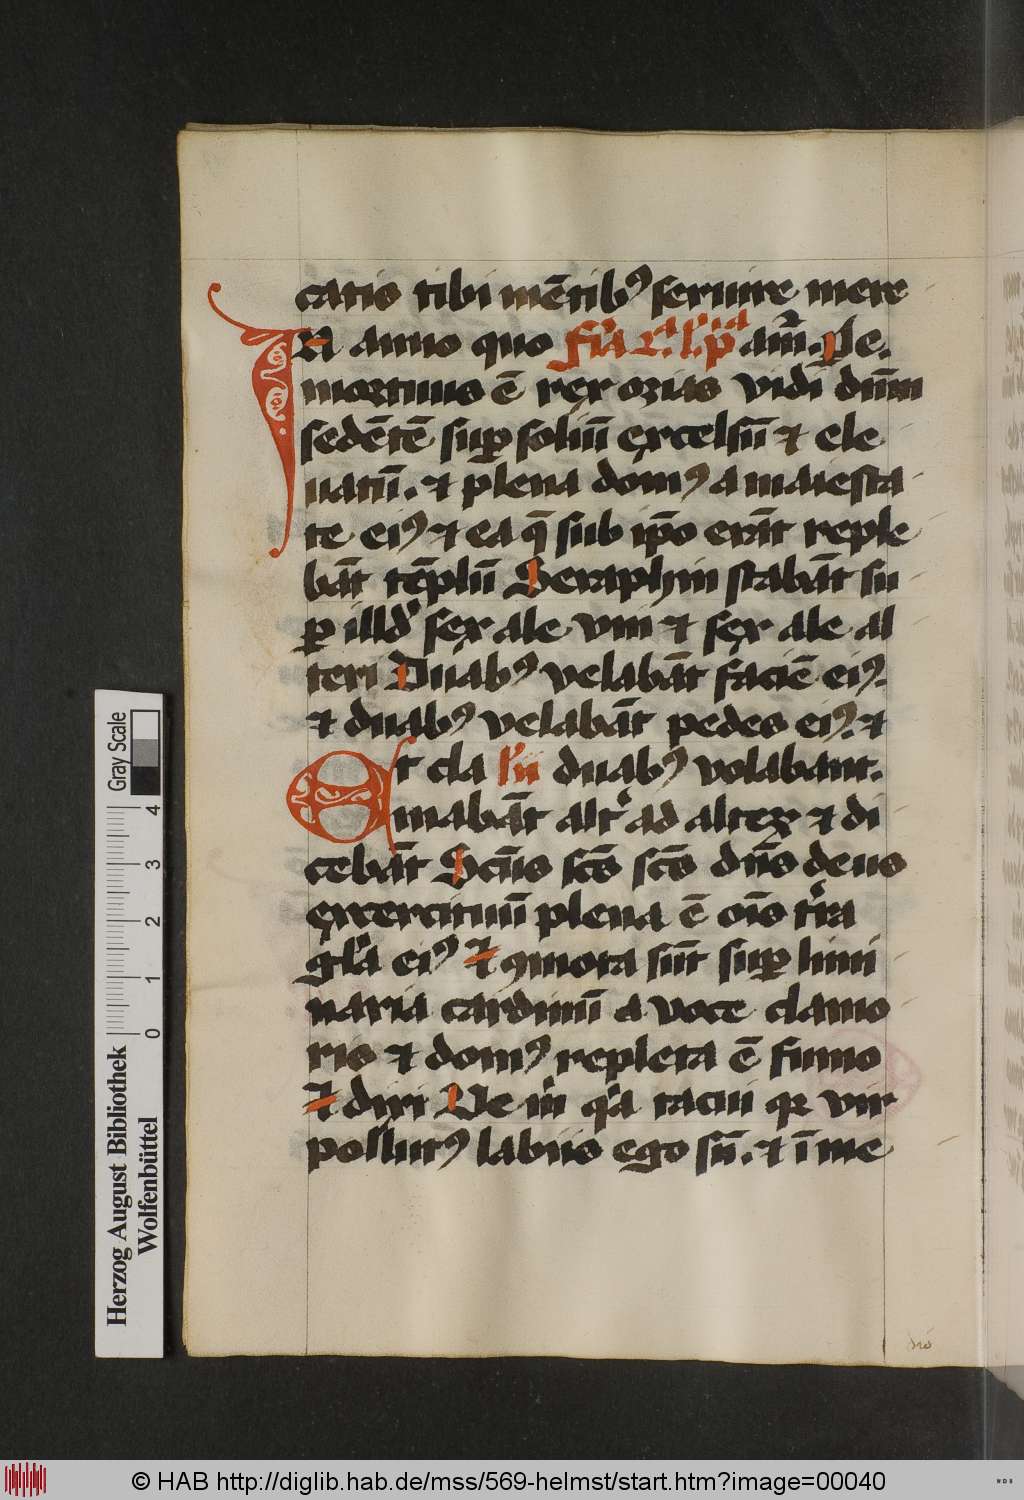 catis tibi mētibꝰ seruire mere
IN anno quo fr̄ia c͛. l͛. p̄ia am̄. Pe.
mortuus ē rex ozias vidi dn̄m
sedētē suꝑ soliū excelsū ⁊ ele
uatū. ⁊ plena domꝰ a maiesta
te eiꝰ ⁊ ea q̄ sub ip̄o erāt reple
bāt tēplū Seraphin stabāt su
ꝑ illd̓ sex ale vni ⁊ sex ale al
teri Duabꝰ velabāt faciē eiꝰ.
⁊ duabꝰ velabāt pedes eiꝰ. ⁊
Et cla duabꝰ volabant.
mabāt alt̓ ad alteꝝ ⁊ di
cebāt Scn̄s sc̄s sc̄s dn̄s deus
exercituū plena ē oīs t̓ra
gl̓a eiꝰ ⁊ ꝯmota sūt suꝑ limi
naria cardinū a voce clamo
ris ⁊ domꝰ repleta ē fumo
⁊ dixi Ve m̓ q̓a tacui qꝛ vir
pollutꝰ labiis ego sū. ⁊ ī me
Gray Scale
0 1 2 3 4
Herzog August Bibliothek
Wolfenbüttel
© HAB http://diglib.hab.de/mss/569-helmst/start.htm?image=00040